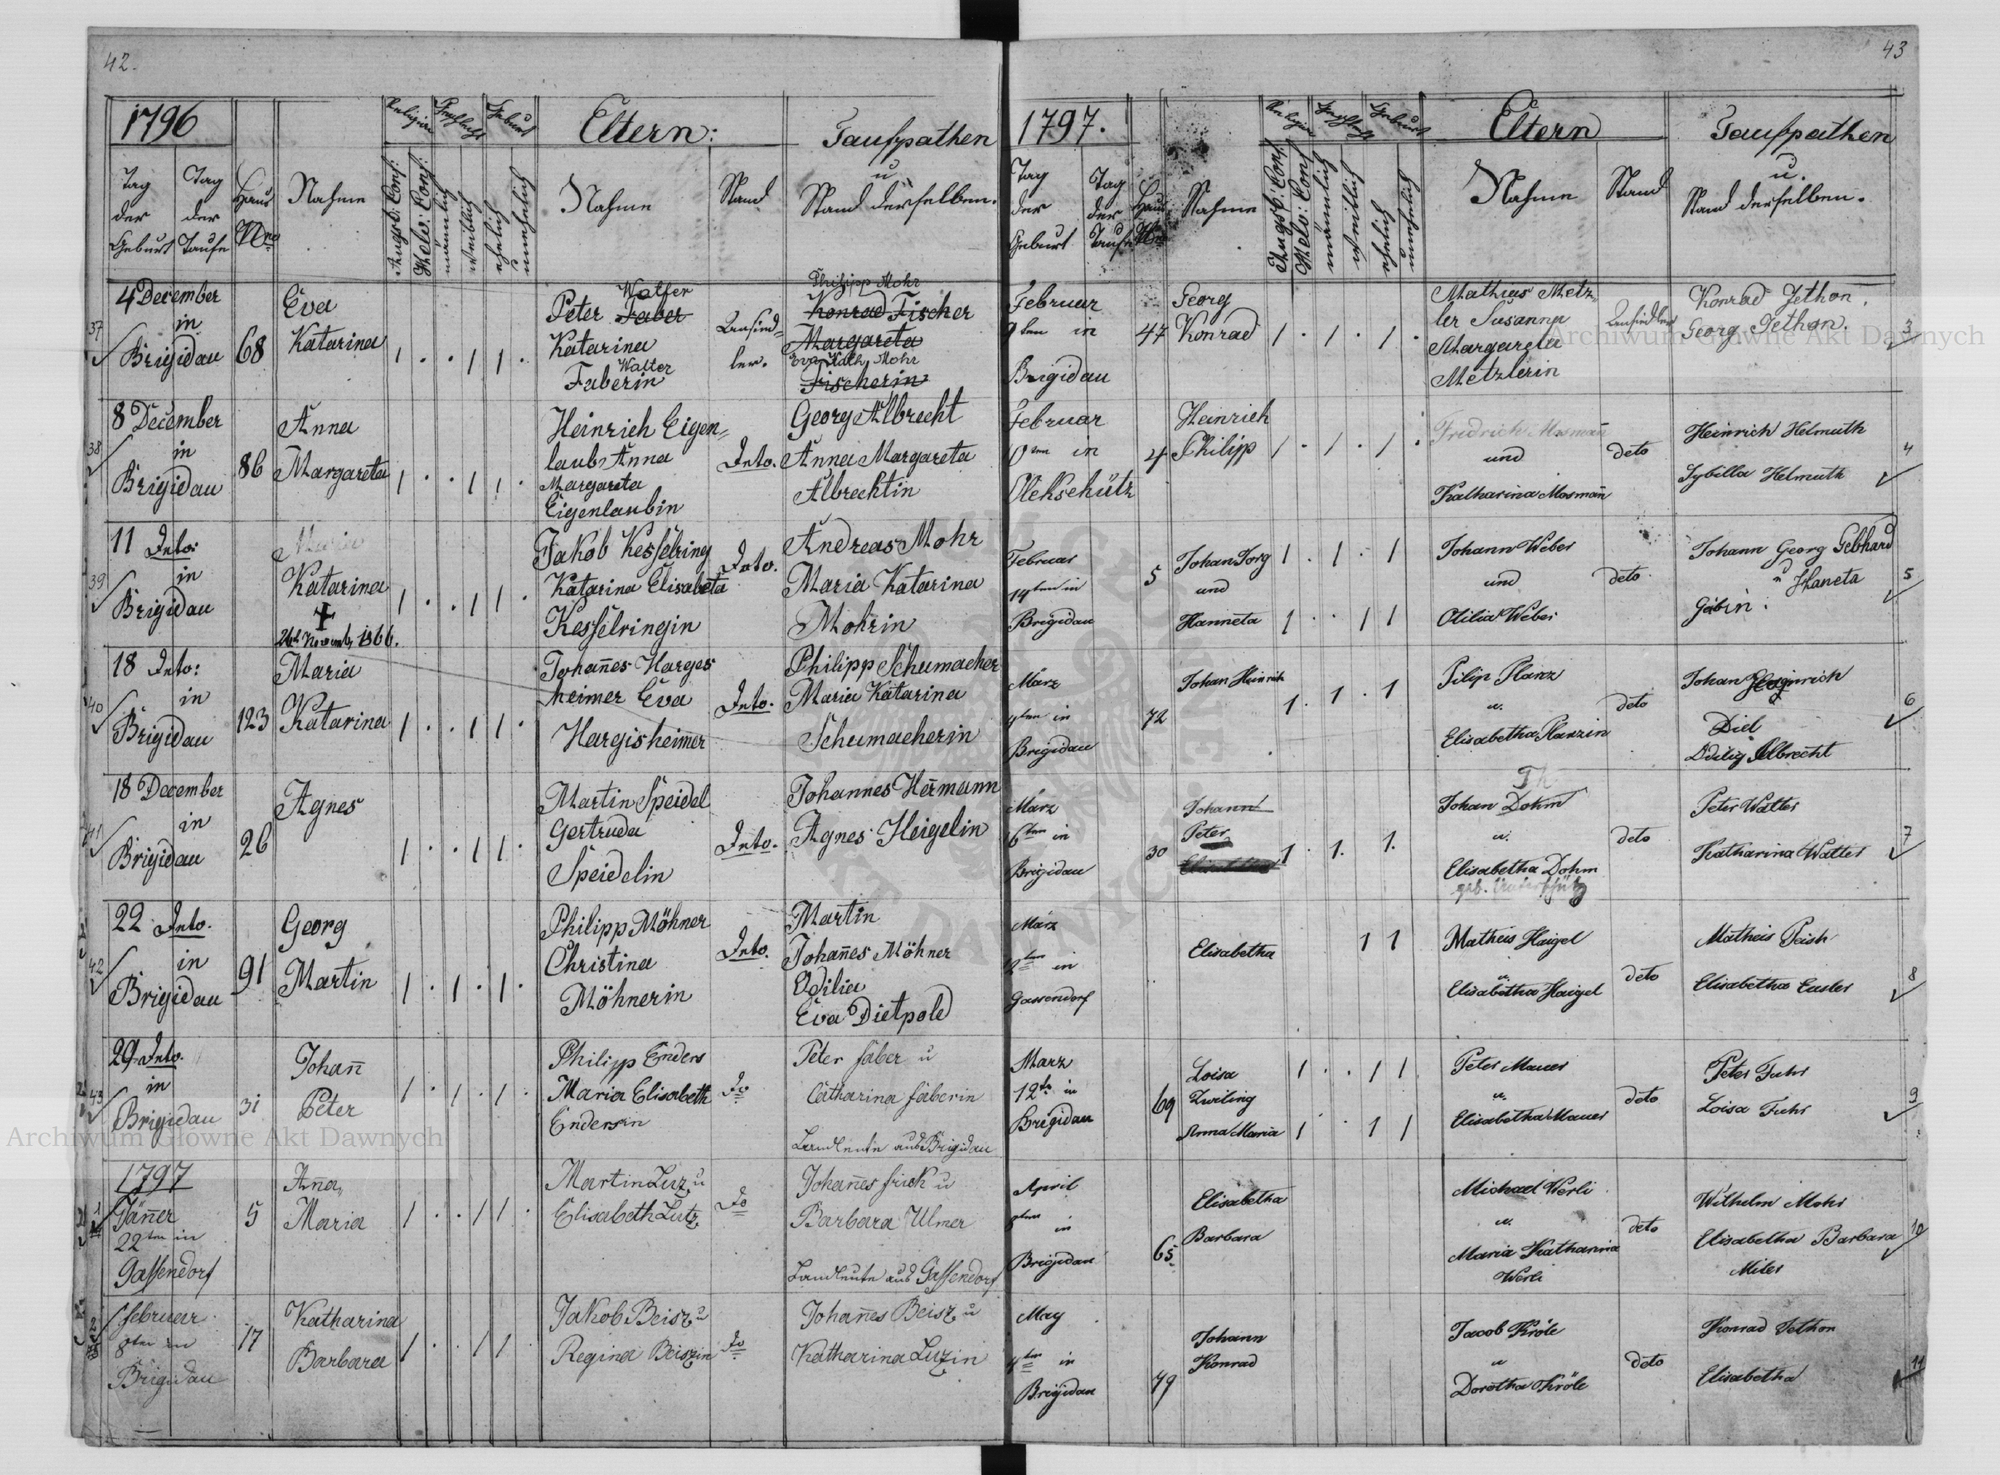 42.
1796
Religion
Geschlecht
Geburt
Eltern:
Taufpathen
u
Stand derselben.
Tag der Geburt
Tag der Taufe
Haus Nro
Nahme
Augsb: Conf:
Helv: Conf:
männlich
weiblich
ehelich
unehelich
Nahme
Stand
37
4 December
in
Brigidau
68
Eva
Katarina
1 . . 1 1 .
Walter
Peter Faber
Katarina
Walter
Faberin
Ansied-
ler.
Philipp Mohr
Konrad Fischer
Margareta
Eva Kath Mohr
Fischerin
38
8 December
in
Brigidau
86
Anna
Margareta
1 . . 1 1 .
Heinrich Eigen-
laub, Anna
Margareta
Eigenlaubin
Dto.
Georg Albrecht
Anna Margareta
Albrechtin
39
11 Dto:
in
Brigidau
Maria
Katarina
24t November 1866.
1 . . 1 1 .
Jakob Kesselring
Katarina Elisabeta
Kesselringin
Dto.
Andreas Mohr
Maria Katarina
Mohrin
40
18 Dto:
in
Brigidau
123
Maria
Katarina
1 . . 1 1 .
Johañes Harges
heimer Eva
Hargisheimer
Dto.
Philipp Schumacher
Maria Katarina
Schumacherin
41
18 December
in
Brigidau
26
Agnes
1 . . 1 1 .
Martin Speidel
Gertruda
Speidelin
Dto.
Johannes Hermann
Agnes Heigelin
42
22 Dto.
in
Brigidau
91
Georg
Martin
1 . 1 . 1 .
Philipp Möhner
Christina
Möhnerin
Dto.
Martin
Johañes Möhner
Odilia
Eva Dietpold
43
29 Dto.
in
Brigidau
31
Johañ
Peter
1 . 1 . 1 .
Philipp Enders
Maria Elisabeth
Endersin
Do
Peter faber u
Catharina faberin
Landleute aus Brigidau
1797
1
Jäñer
22ten in
Gassendorf
5
Aña
Maria
1 . . 1 1 .
Martin Luz u
Elisabeth Lutz
Do
Johañes frick u
Barbara Ulmer
Landleute aus Gassendorf
2
februar
8ten in
Brigidau
17
Katharina
Barbara
1 . . 1 1
Jakob Beisz u
Regina Beiszin
Do
Johañes Beisz u
Katharina Luzin
43
1797.
Religion
Geschlecht
Geburt
Eltern
Taufpathen
u.
Stand derselben.
Tag der Geburt
Tag der Taufe
Haus Nro
Nahme
Augsb: Conf
Helv: Conf
männlich
weiblich
ehelich
unehelich
Nahme
Stand
Februar
9ten in
Brigidau
47
Georg
Konrad
1 . 1 . 1 .
Mathias Metz-
ler Susanna
Margareta
Metzlerin
Ansiedler
Konrad Jethon.
Georg Jethon.
3
Februar
10ten in
Olekschütz
4
Heinrich
Philipp
1 . 1 . 1 .
Fridrich Mosmañ
und
Katharina Mosmañ
deto
Heinrich Helmuth
Sybilla Helmuth
4
Februar
14ten in
Brigidau
5
Johan Jorg
und
Hanneta
1 . 1 . 1
1 . . 1 1
Johann Weber
und
Otilia Weber
deto
Johann Georg Gebhard
u Haneta
5
März
9ten in
Brigidau
72
Johan Heinrich
1 . 1 . 1
Pilip Planz
u.
Elisabetha Planzin
deto
Johan Heinrich
Diel
Odilig Albrecht
6
März
16ten in
Brigidau
30
Johann
Peter
1 . 1. 1.
Th
Johan Dohm
u.
Elisabetha Dohm
deto
Peter Walter
Katharina Walter
7
März
12ten in
Gassendorf
Elisabetha
1 1
Matheis Haigel
u
Elisabetha Haigel
deto
Matheis Paish
Elisabetha Easler
8
Marz
12te in
Brigidau
69
Loisa
Zwiling
Anna Maria
1 . . 1 1
1 . 1 1
Peter Mauer
u.
Elisabetha Mauer
deto
Peter Fuhr
Loisa Fuhr
9
April
8ten
in
Brigidau
65
Elisabetha
Barbara
Michael Werli
u.
Maria Katharina
Werli
deto
Wilhelm Mohr
Elisabetha Barbara
Miler
10
May
4ten in
Brigidau
79
Johann
Konrad
Jacob Kröle
u
Dorotha Kröle
deto
Konrad Jethon
Elisabetha
11
Archiwum Główne Akt Dawnych
Archiwum Główne Akt Dawnych